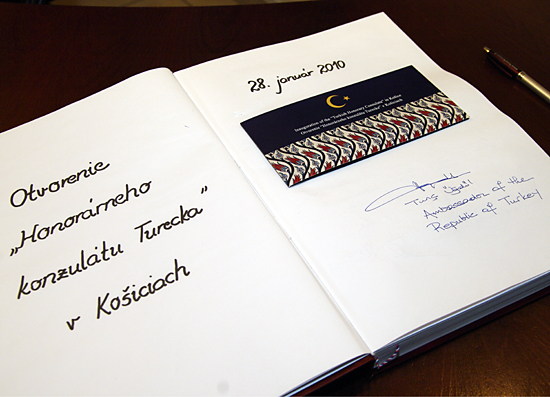 Otvorenie
„Honorárneho
konzulátu Turecka”
v Košiciach
28. január 2010
Inauguration of the "Turkish Honorary Consulate" in Košice
Otvorenie "Honorárneho konzulátu Turecka" v Košiciach
Ambassador of the
Republic of Turkey